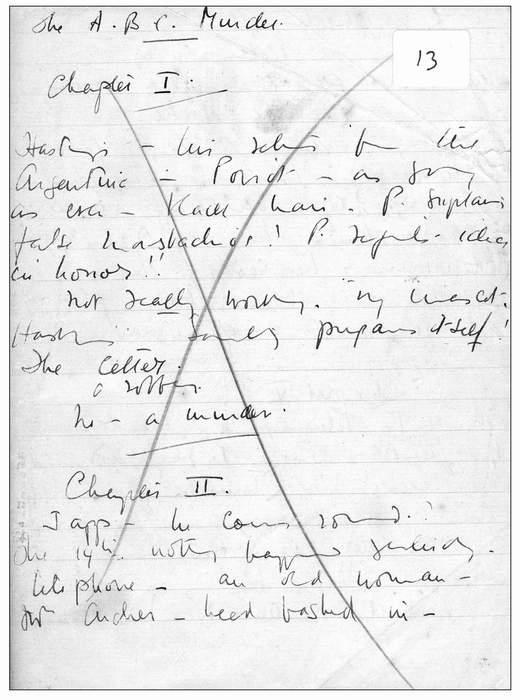 The A.B.C. Murder.
13
Chapter I.
Hastings – his return from the
Argentine – Poirot – as young
as ever – Black hair. P. explains
false moustaches! P.
in horror!!
Not really working.
Hastings prepares itself!
The letter.
a robbery.
No – a murder.
Chapter II.
Japp – he comes round.
The 14th. nothing happens
telephone – an old woman –
Archer – head bashed in –